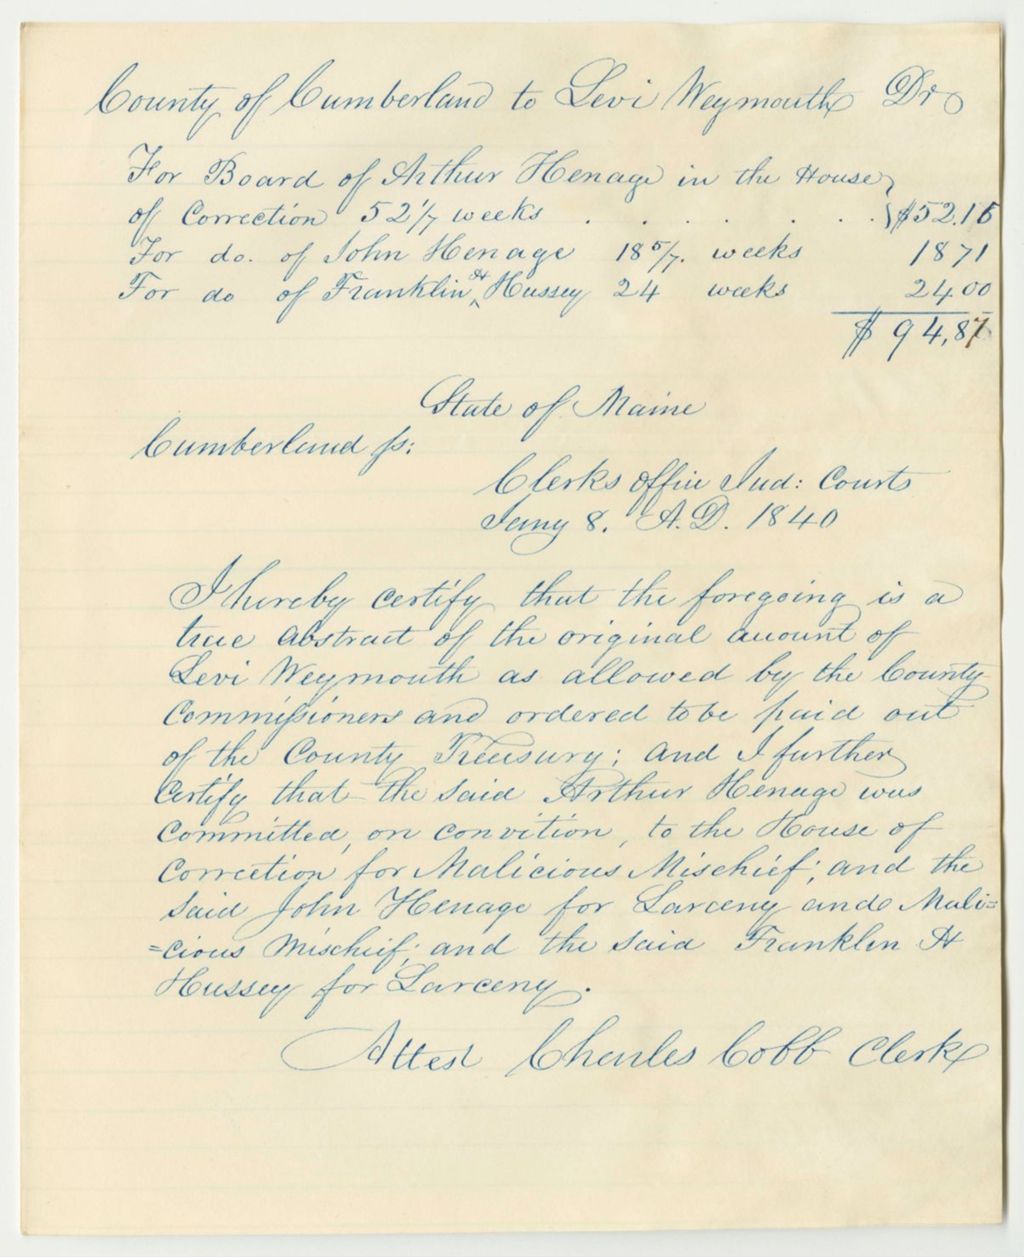 County of Cumberland to Levi Weymouth Dr
For Board of Arthur Henage in the House
of Correction 52 1/7 weeks . . . . . . . $52.16
For do. of John Henage 18 5/7. weeks 18 71
For do of Franklin H Hussey 24 weeks 24 00
$ 94,87
State of Maine
Cumberland ss:
Clerks office Jud: Courts
Jany 8. A.D. 1840
I hereby certify that the foregoing is a
true abstract of the original account of
Levi Weymouth as allowed by the County
Commissioners and ordered to be paid out
of the County Treasury; and I further
Certify that the said Arthur Henage was
Committed, on convition, to the House of
Correction for Malicious Mischief; and the
said John Henage for Larceny and Mali=
=cious Mischief; and the said Franklin H
Hussey for Larceny.
Attest Charles Cobb Clerk